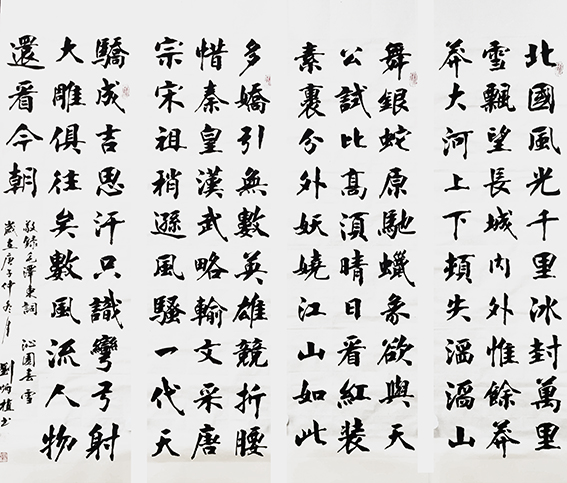 北國風光千里冰封萬里
雪飄望長城内外惟餘莽
莽大河上下頓失滔滔山
舞銀蛇原馳蠟象欲與天
公試比高須晴日看紅裝
素裹分外妖嬈江山如此
多嬌引無數英雄競折腰
惜秦皇漢武略輸文采唐
宗宋祖稍遜風騷一代天
驕成吉思汗只識彎弓射
大雕俱往矣數風流人物
還看今朝
敬錄毛澤東詞 沁園春雪
歲在庚子仲冬月 劉炳植书